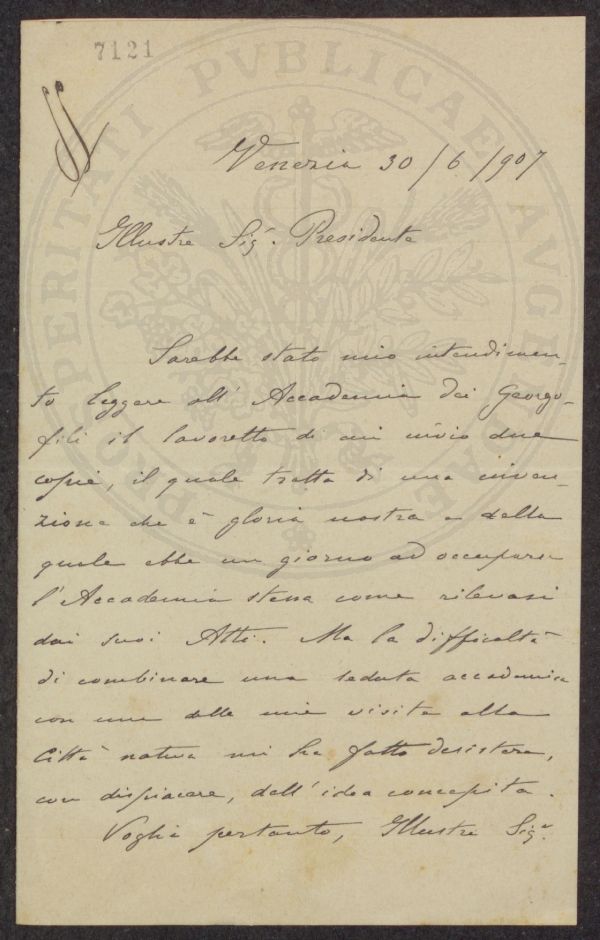 7121
PROSPERITATI PVBLICAE AVGENDAE
Venezia 30/6/907
Illustre Sigr. Presidente
Sarebbe stato mio intendimen-
to leggere all'Accademia dei Georgo-
fili il lavoretto di cui invio due
copie, il quale tratta di una inven-
zione che è gloria nostra e della
quale ebbe un giorno ad occuparsi
l'Accademia stessa come rilevasi
dai suoi Atti. Ma la difficoltà
di combinare una seduta accademica
con una delle mie visite alla
Città nativa mi ha fatto desistere,
con dispiacere, dall'idea concepita.
Voglia pertanto, Illustre Sigr.